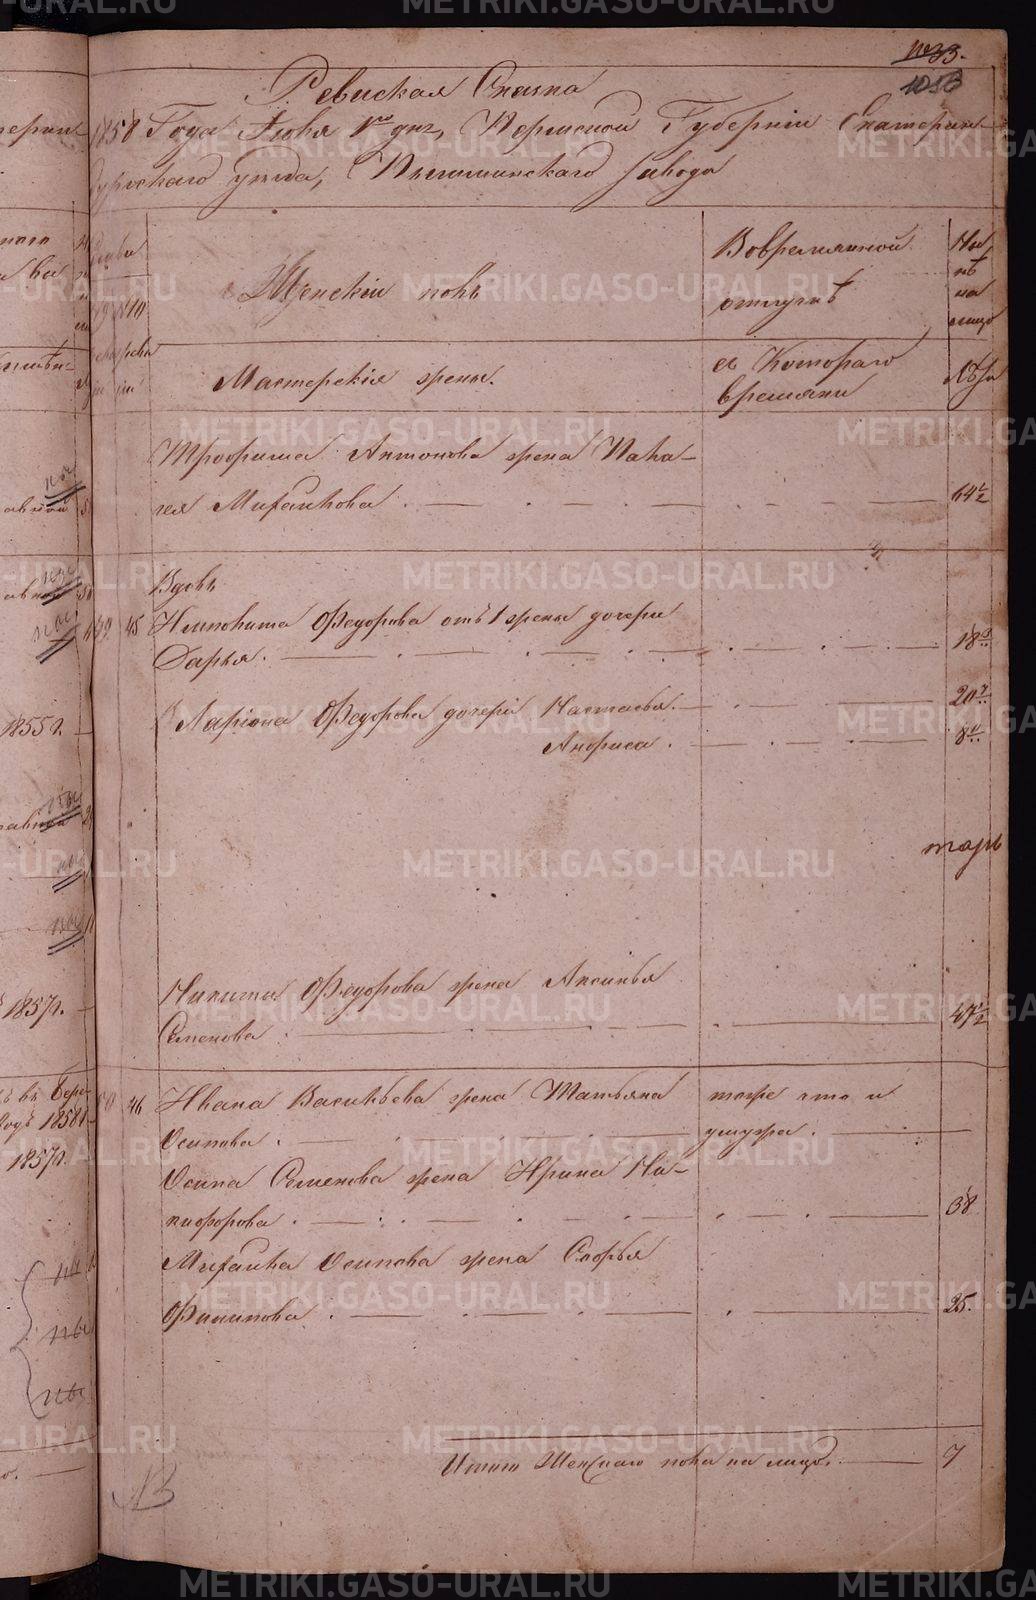 1013
Ревиская Сказка
1858 Года Июня 1го дня, Пермской Губерніи Екатерин-
бургскаго уѣзда, Пышминскаго завода
Женскій полъ
Вовремянной
отлучкѣ
На
лицо
Мастерскія жены.
съ Котораго
времяни
Лѣта
Трофима Антонова жена Пала-
гея Михайлова
64½
Вдовъ
45
Филиппа Федорова отъ 1 жены дочери
Дарья.
18
Ларіона Федорова дочери Настасья.
20
Анфиса.
8
Никиты Федорова жена Аксинья
Семенова
47½
46
Ивана Васильева жена Татьяна
тоже что и
Осипова.
у мужа.
Осипа Семенова жена Ирина Ни-
кифорова.
38
Михайла Осипова жена Софья
Филипова
25.
Итого Женскаго пола на лицо.
7
1855г.
1857г.
1858г.
1857г.
METRIKI.GASO-URAL.RU